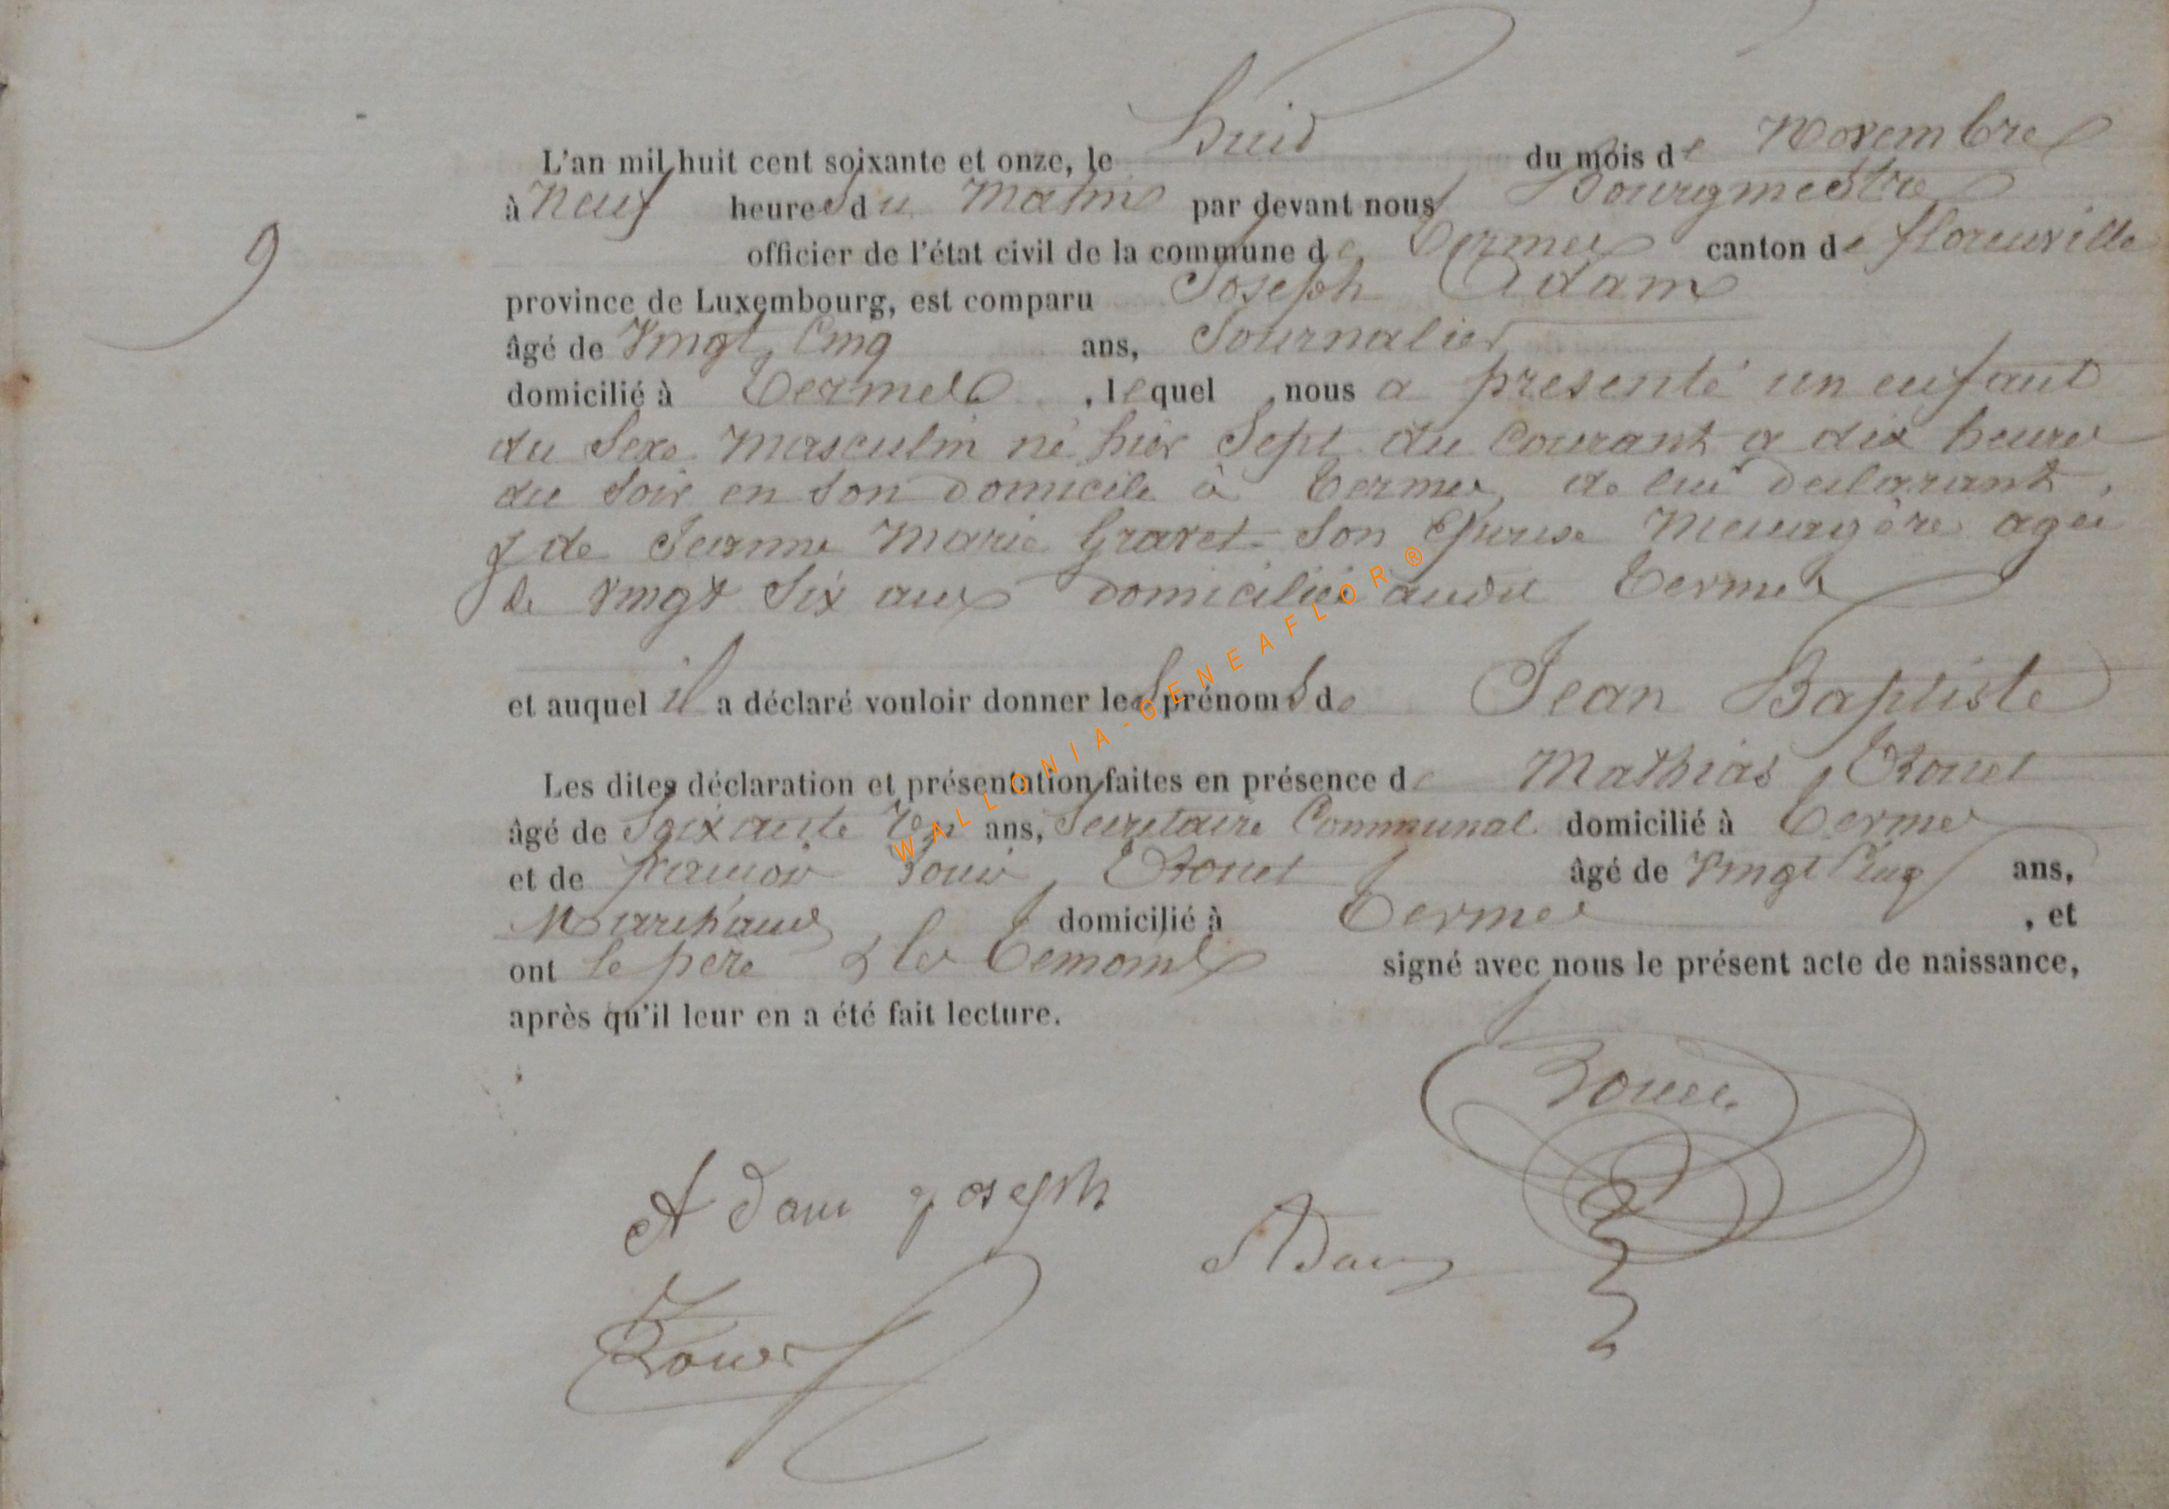 L'an mil huit cent soixante et onze, le huit du mois de Novembre
à Neuf heures du Matin par devant nous Bourgmestre
officier de l'état civil de la commune de Termes canton de florenville
province de Luxembourg, est comparu Joseph Adam
9
âgé de Vingt Cinq ans, Journalier
domicilié à Termes, lequel nous a présenté un enfant
du Sexe Masculin né hier Sept du Courant a dix heures
du Soir en Son Domicile à Termes, de lui declarant,
& de Jeanne Marie Gravet Son Epouse Menagère agée
de Vingt Six ans Domiciliée audit Termes
et auquel il a déclaré vouloir donner les prénoms de Jean Baptiste
Les dites déclaration et présentation faites en présence de Mathias
âgé de Soixante ans, Secretaire Communal domicilié à Termes
et de francois Louis âgé de Vingt Cinq ans,
Marchand domicilié à Termes, et
ont le père & les Temoins signé avec nous le présent acte de naissance,
après qu'il leur en a été fait lecture.
Adam joseph
Adam
WALLONIA-GENEAFLOR®